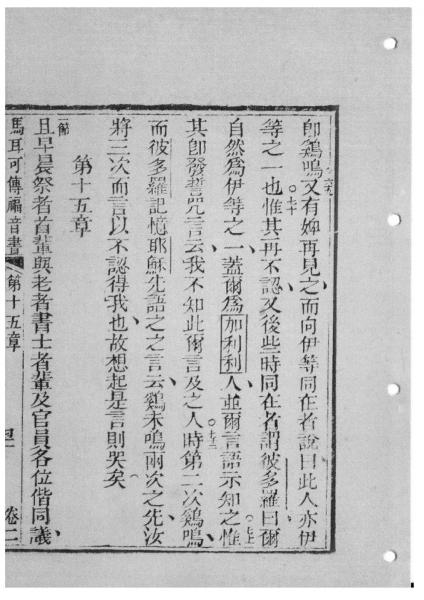 卽鷄鳴六九又有婢再見之而向伊等同在者說曰此人亦伊
等之一也七十惟其再不認又後些時同在者謂彼多羅曰爾
自然爲伊等之一蓋爾爲加利利人並爾言語示知之七十一惟
其卽發誓咒言云我不知此爾言及之人七十二時第二次鷄鳴
而彼多羅記憶耶穌先語之之言云鷄未鳴兩次之先汝
將三次而言以不認得我也故想起是言則哭矣
第十五章
一節且早晨祭者首輩與老者書士者輩及官員各位偕同議
馬耳可傳福音書 第十五章 卷二